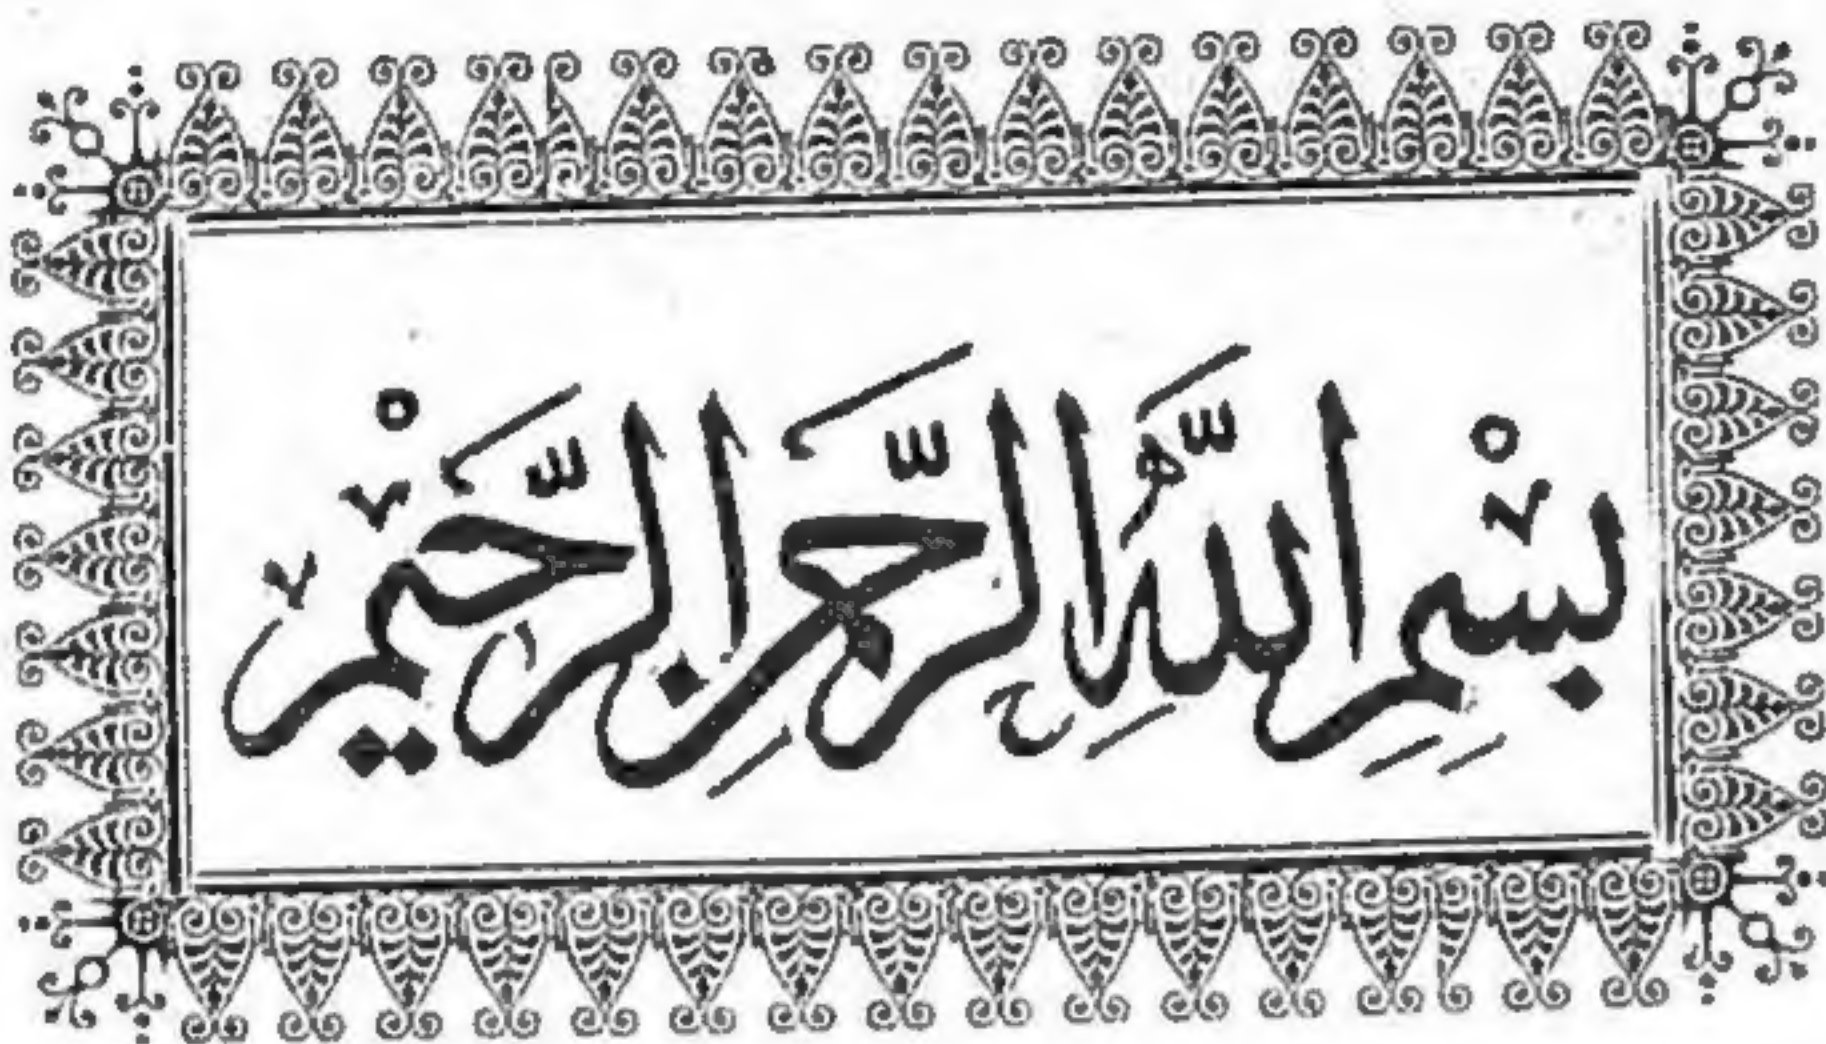 بِسْمِ اللَّهِ الرَّحْمَنِ الرَّحِيمِ